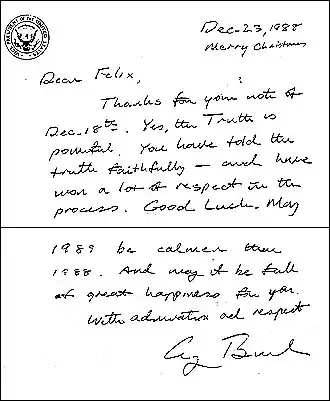 Dec. 23, 1988
Merry Christmas
Dear Felix,
Thanks for your note of
Dec. 18th. Yes, the Truth is
powerful. You have told the
truth faithfully — and have
won a lot of respect in the
process. Good Luck. May
1989 be calmer than
1988. And may it be full
of great happiness for you.
With admiration and respect
G Bush